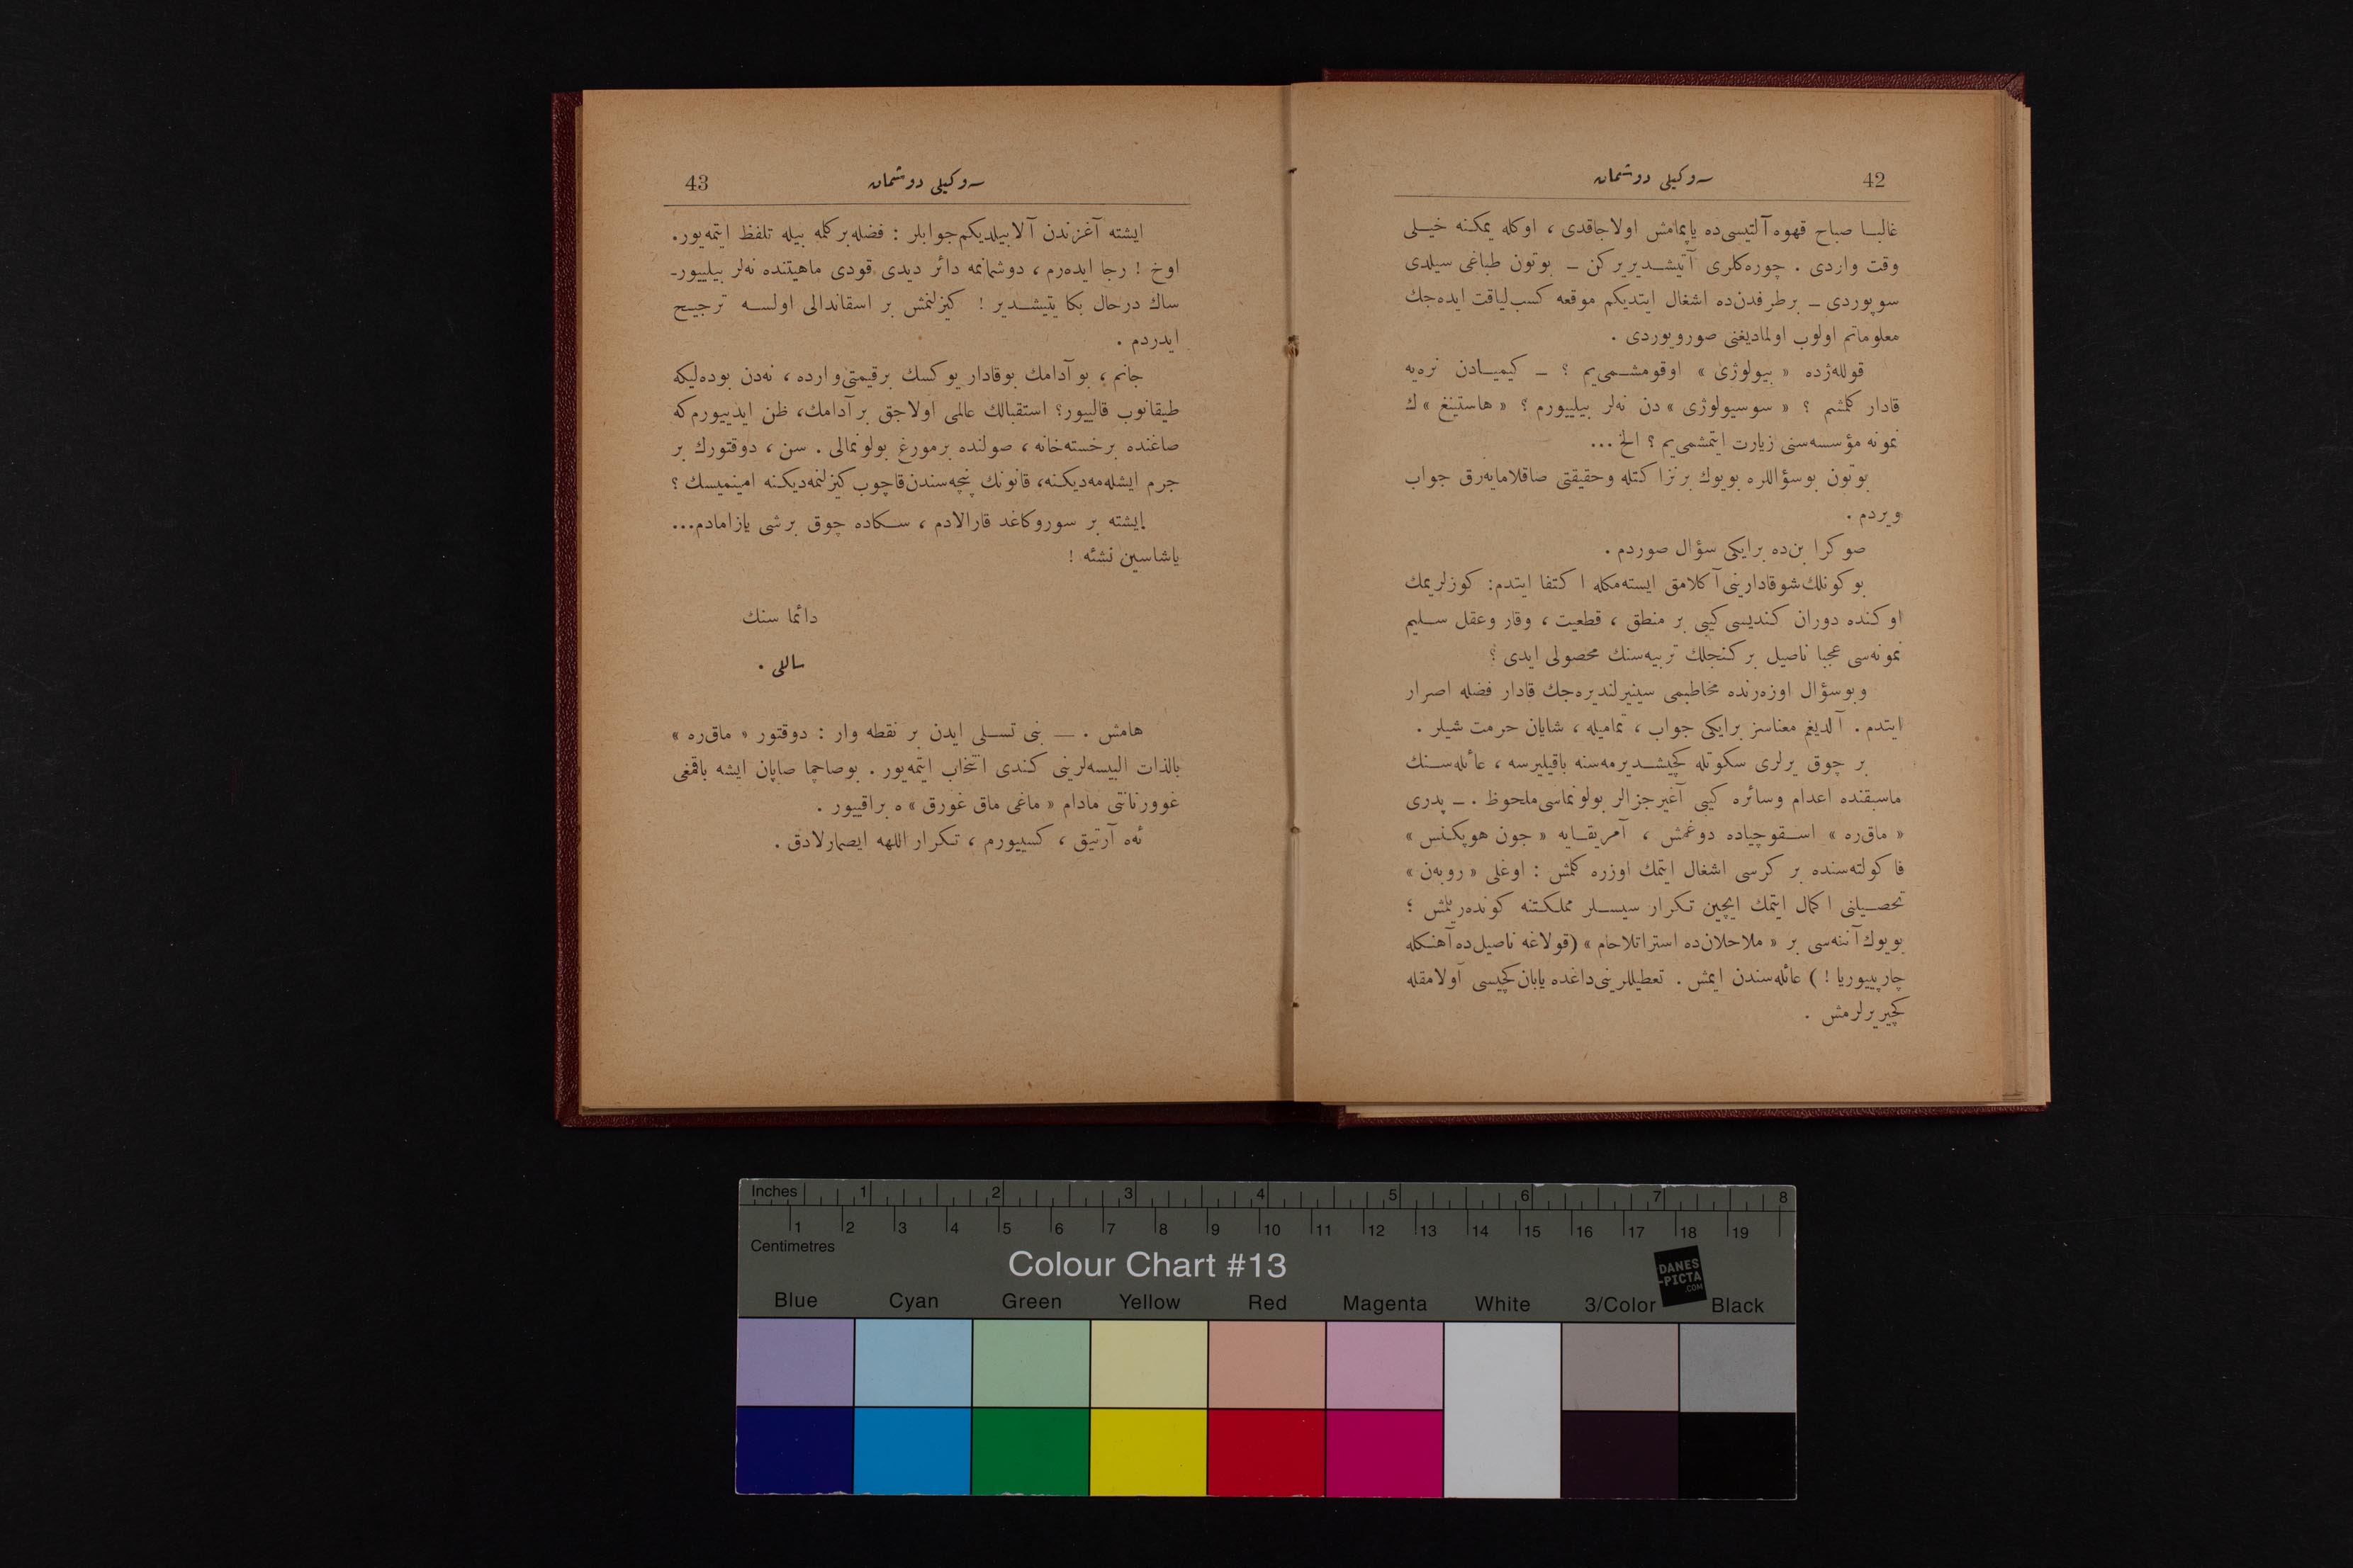 42
سوكیلی دوشمان
غالبـا صباح قهوه آلتیسی‌ده یاپمامش اولاجاقدی ، اوكله یمكنه خیـلی
وقت واردی . چوره‌كلری آتیشـدیریركن ــ بوتون طباغی سیلدی
سوپوردی ــ برطرفدن‌ده اشغال ایتدیكم موقعه كسب‌لیاقت ایده‌جك
معلوماتم اولوب اولمادیغنی صورویوردی .
قوللەژده « بیولوژی » اوقومشـمی‌یم ؟ ــ كیمیـادن نره‌یه
قادار كلمشم ؟ « سوسیولوژی » دن نه‌لر بیلییورم ؟ « هاستینغ » ك
نمونه مؤسسه‌سنی زیارت ایتمشمی‌یم ؟ الخ ...
بوتون بوسؤاللره بویوك برنزاكتله وحقیقتی صاقلامایه‌رق جواب
ویردم .
صوكرا بن‌ده برایكی سؤال صوردم .
بوكونلك شوقادارینی آكلامق ایسته‌مكله اكتفا ایتدم: كوزلریمك
اوكنده دوران كندیسی كیبی بر منطق ، قطعیت ، وقار وعقل سـلیم
نمونه‌سی عجبا ناصیل بركنجلك تربیه‌سنك محصولی ایدی ؟
وبوسؤال اوزه‌رنده مخاطبمی سینیرلندیره‌جك قادار فضله اصرار
ایتدم . آلدیغم معناسز برایكی جواب ، تمامیله ، شایان حرمت شیلر .
بر چوق یرلری سكوتله كچیشـدیرمه‌سنه باقیلیرسه ، عائله‌سـنك
ماسبقنده اعدام وسائره كیبی آغیرجزالر بولونماسی‌ملحوظ . ــ پدری
« ماق‌ره » اسـقوچیاده دوغمش ، آمریقـایه « جون هوپكـنس »
فاكولته‌سنده بر كرسی اشغال ایتمك اوزره كلمش : اوغلی « روبه‌ن »
تحصـیلنی اكمال ایتمك ایچین تكرار سیسـلر مملكـتنه كونده‌ریلمش ؛
بویوك آننه‌سی بر « ملاحلان‌ده استراتلاحام » (قولاغه ناصیل‌ده آهنـكله
چارپییوریا ! ) عائله‌سندن ایمش . تعطیللرینی‌داغده یابان‌كچیسی آولامقله
كچیریرلرمش .
43
سوكیلی دوشمان
ایشته آغزندن آلابیلدیكم‌جوابلر : فضله‌بركلمه بیله تلفظ ایتمه‌یور.
اوخ ! رجا ایده‌رم ، دوشمانمه دائر دیدی قودی ماهیتنده نه‌لر بیلییور‌ـ
ساك درحال بكا یتیشـدیر ! كیزلنمش بر اسقاندالی اولسـه ترجیح
ایدردم .
جانم ، بو آدامك بوقادار یوكسك برقیمتی‌وارده ، نه‌دن بوده‌لیكه
طیقانوب قالییور؟ استقبالك عالمی اولاجق بر آدامك، ظن ایدییورم‌كه
صاغنده برخسته‌خانه ، صولنده برمورغ بولونمالی . سن ، دوقتورك بر
جرم ایشله‌مه‌دیكـنه، قانونك پنچه‌سندن‌قاچوب كیزلنمه‌دیكـنه امینمیسك ؟
ایشته بر سوروكاغد قارالادم ، سـكاده چوق برشی یازامادم...
یاشاسین نشئه !
دائما سنك
ساللی .
هامش . ــ بنی تسـلی ایدن بر نقطه وار : دوقتور « ماق‌ره »
بالذات البیسه‌لرینی كندی انتخاب ایتمه‌یور . بوصاحچا صاپان ایشه باقمغی
غوورنانتی مادام « ماغی ماق غورق » ه براقییور .
ئه‌ه آرتیق ، كسییورم ، تـكرار اللهه ایصمارلادق .
Inches 1 2 3 4 5 6 7 8
1 2 3 4 5 6 7 8 9 10 11 12 13 14 15 16 17 18 19
Centimetres
Colour Chart #13
DANES
-PICTA
.COM
Blue Cyan Green Yellow Red Magenta White 3/Color Black